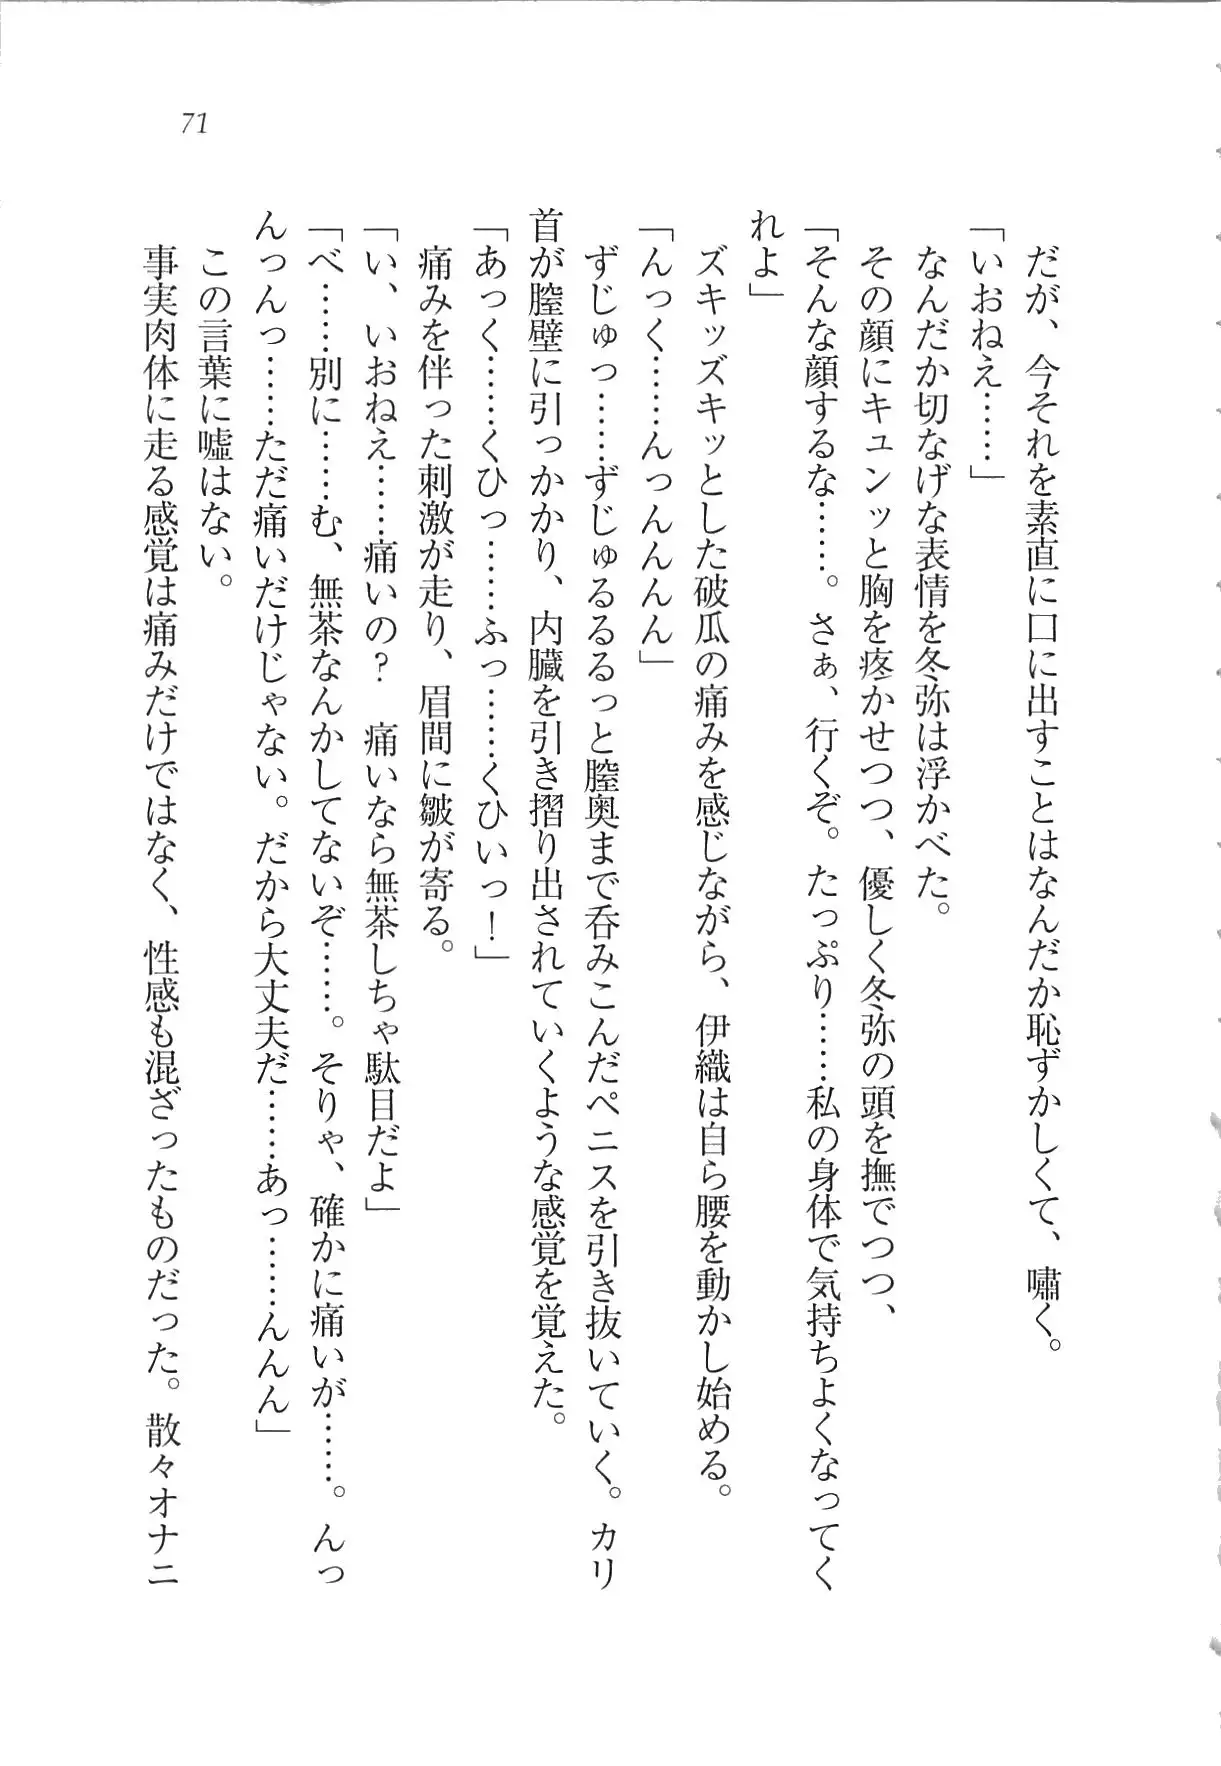 71
だが、今それを素直に口に出すことはなんだか恥ずかしくて、嘯く。
「いおねえ……」
なんだか切なげな表情を冬弥は浮かべた。
その顔にキュンッと胸を疼かせつつ、優しく冬弥の頭を撫でつつ、
「そんな顔するな……。さぁ、行くぞ。たっぷり……私の身体で気持ちよくなってく
れよ」
ズキッズキッとした破瓜の痛みを感じながら、伊織は自ら腰を動かし始める。
「んっく……んっんんん」
ずじゅっ……ずじゅるるるっと膣奥まで呑みこんだペニスを引き抜いていく。カリ
首が膣壁に引っかかり、内臓を引き摺り出されていくような感覚を覚えた。
「あっく……くひっ……ふっ……くひいっ！」
痛みを伴った刺激が走り、眉間に皺が寄る。
「い、いおねえ……痛いの？　痛いなら無茶しちゃ駄目だよ」
「べ……別に……む、無茶なんかしてないぞ……。そりゃ、確かに痛いが……。んっ
んっんっ……ただ痛いだけじゃない。だから大丈夫だ……あっ……んんん」
この言葉に嘘はない。
事実肉体に走る感覚は痛みだけではなく、性感も混ざったものだった。散々オナニ